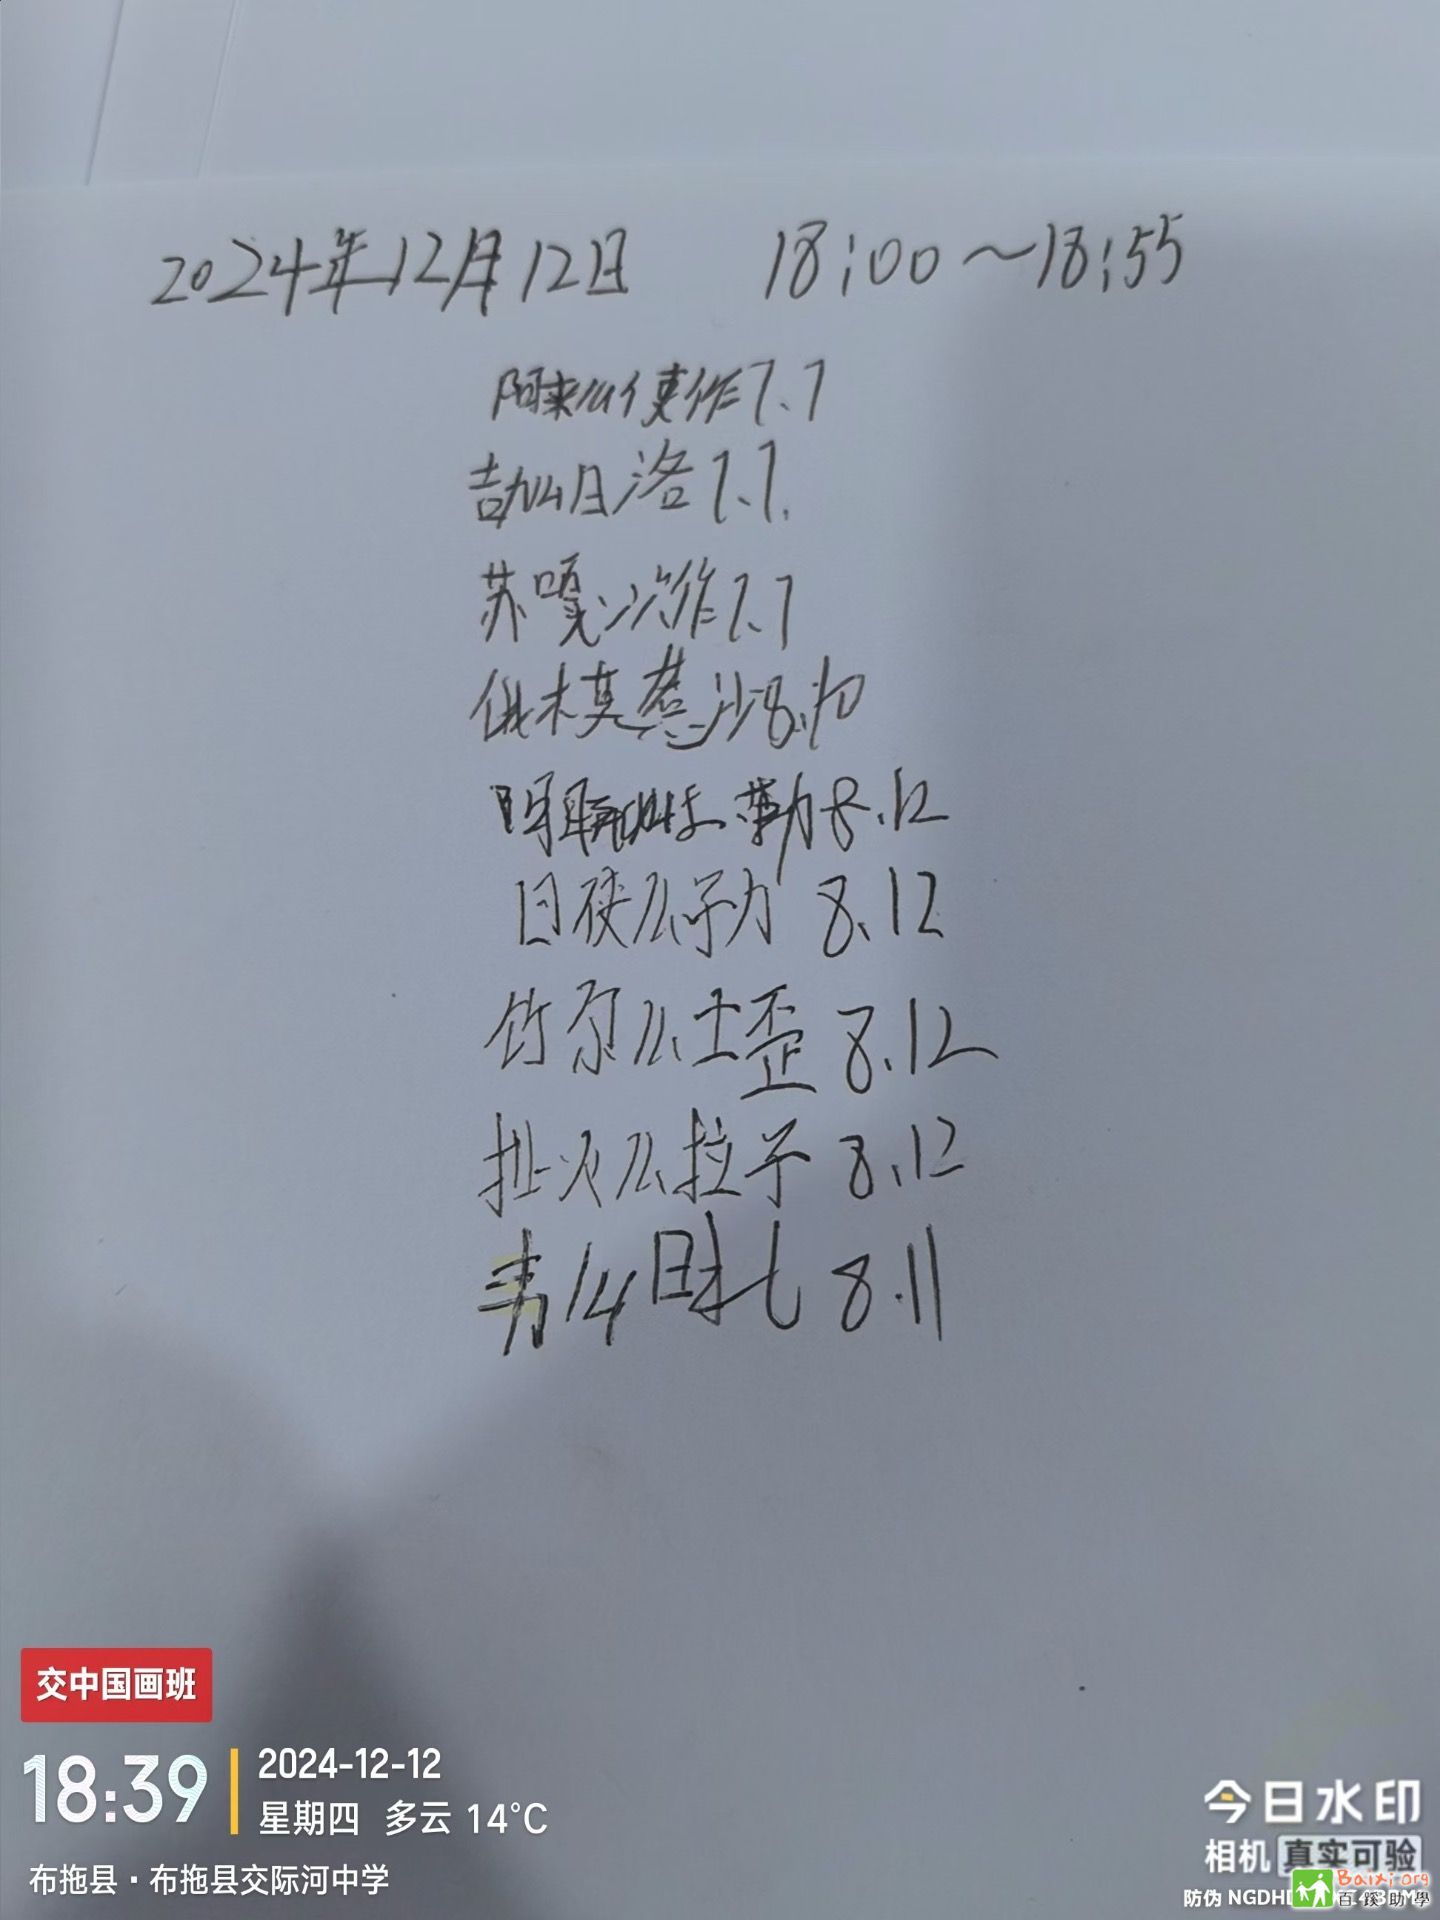 2024年12月12日 18:00~18:55
阿来么使作7.7
吉加日洛7.7.
苏嘎沙作7.7
俄木莫惹沙8.10
勒8.12
日使么子力 8.12
竹尔么土歪 8.12
扯火么拉子 8.12
日扎 8.11
交中国画班
18:39
2024-12-12
星期四 多云 14°C
布拖县·布拖县交际河中学
今日水印
相机 真实可验
防伪 NGDH
Baixi.org
百蹊助學